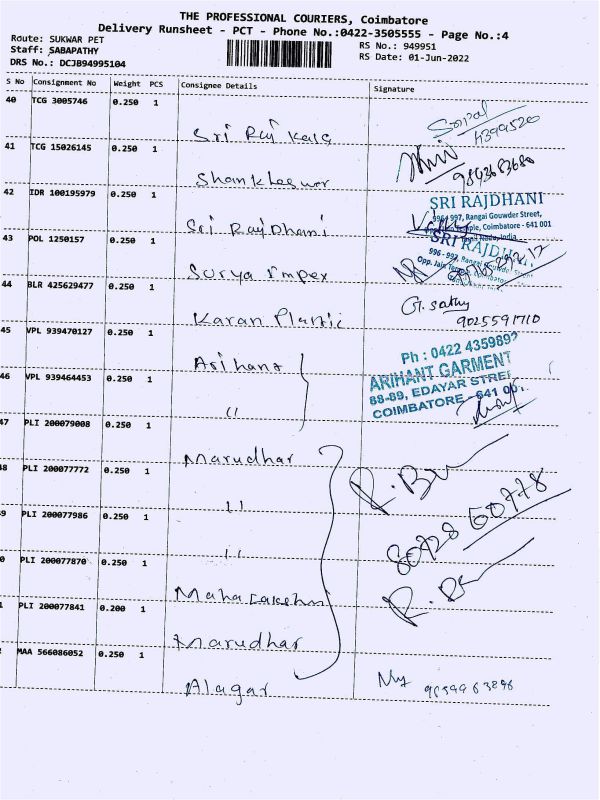 THE PROFESSIONAL COURIERS, Coimbatore
Delivery Runsheet - PCT - Phone No.:0422-3505555 - Page No.:4
Route: SUKWAR PET
RS No.: 949951
Staff: SABAPATHY
RS Date: 01-Jun-2022
DRS No.: DCJB94995104
S No Consignment No Weight PCS Consignee Details Signature
40 TCG 3005746 0.250 1
Sri Raj Kala
41 TCG 15026145 0.250 1
Shankheswar
9843683680
42 IDR 100195979 0.250 1
Sri RajDhani
SRI RAJDHANI
997, Rangai Gowder Street,
Temple, Coimbatore - 641 001
Tamil Nadu, India
43 POL 1250157 0.250 1
Surya Impex
SRI RAJDHANI
996 - 997, Rangai Gowder Street
Opp. Jain
44 BLR 425629477 0.250 1
Karan Plastic
G. sathy
9025591710
45 VPL 939470127 0.250 1
Arihant
Ph : 0422 4359892
ARIHANT GARMENT
88-89, EDAYAR STREE
COIMBATORE - 641 001.
46 VPL 939464453 0.250 1
"
47 PLI 200079008 0.250 1
Marudhar
48 PLI 200077772 0.250 1
"
9 PLI 200077986 0.250 1
"
80728 60778
0 PLI 200077870 0.250 1
Maha Lakshmi
1 PLI 200077841 0.200 1
Marudhar
MAA 566086052 0.250 1
Alagar
9659963896